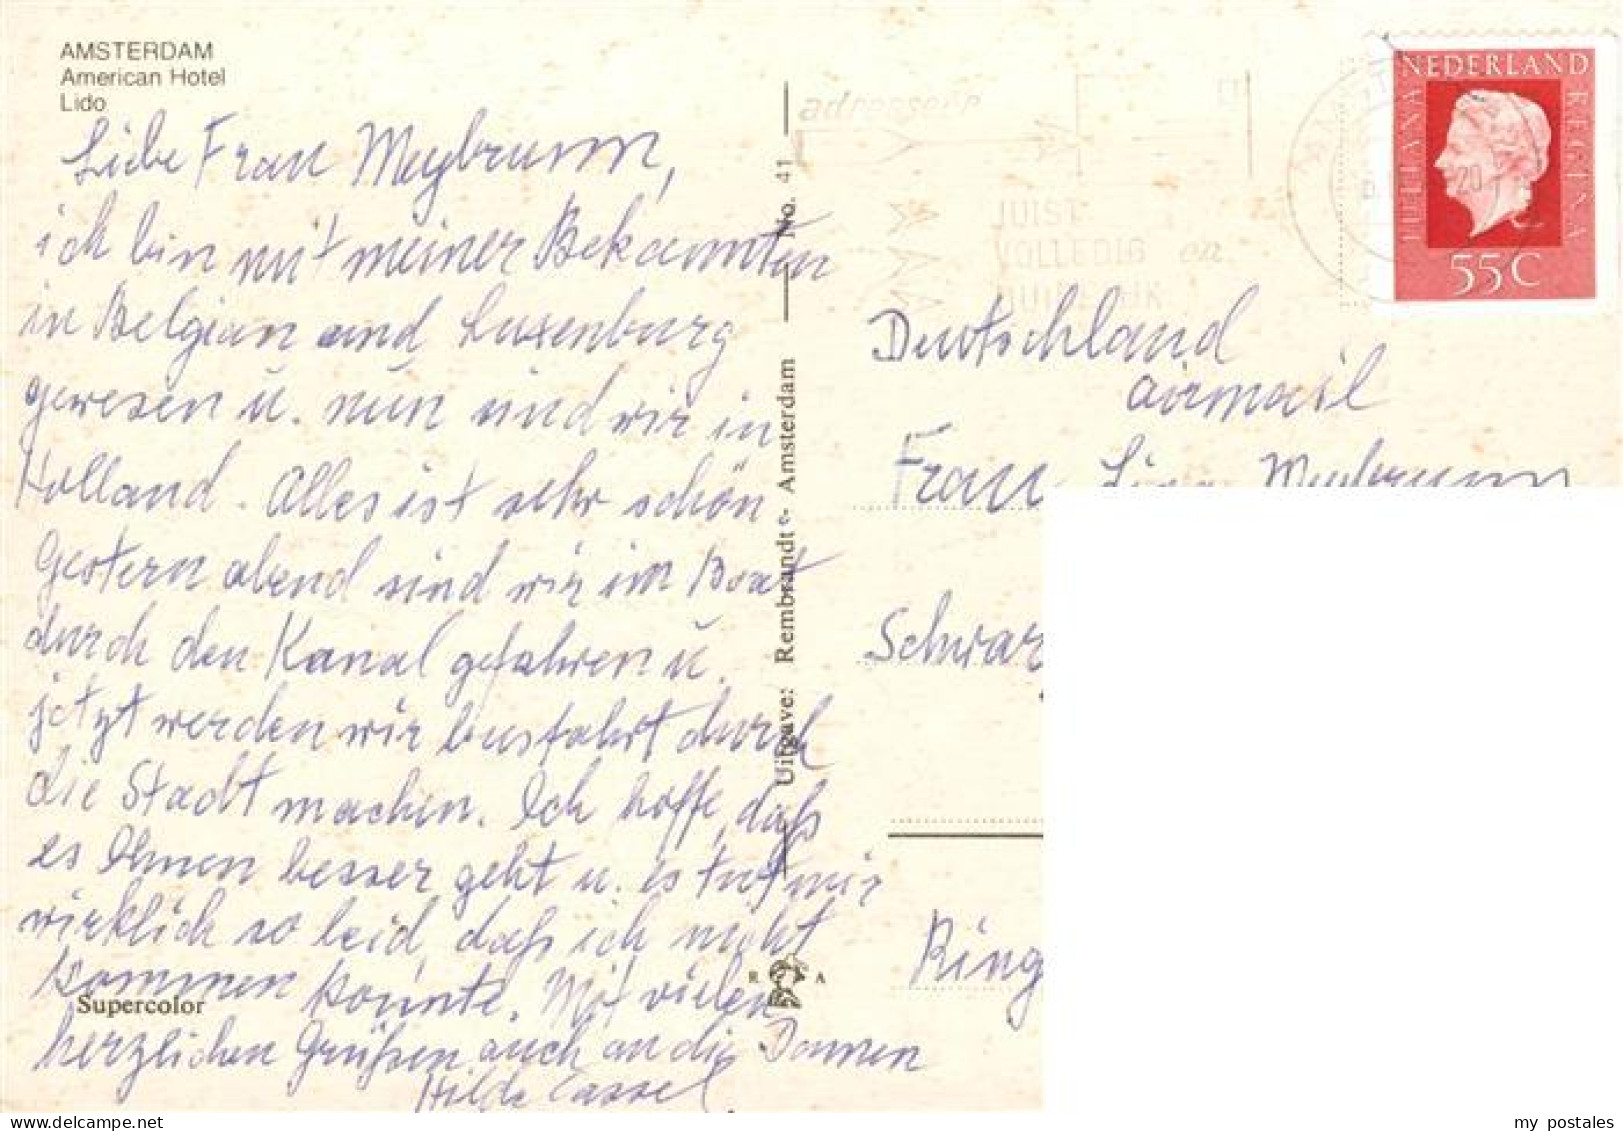 AMSTERDAM
American Hotel
Lido
Liebe Frau Meybrunn,
ich bin mit meiner Bekannten
in Belgian und Luxenburg
gewesen u. nun sind wir in
Holland. Alles ist sehr schön
Gestern abend sind wir im Boat
durch den Kanal gefahren u.
jetzt werden wir busfahrt durch
die Stadt machen. Ich hoffe, daß
es Ihnen besser geht u. es tut mir
wirklich so leid, daß ich nicht
kommen konnte. Mit vielen
herzlichen Grüßen auch an die Damen
Hilde Cassel
Supercolor
Uitgave: Rembrandt - Amsterdam No. 41
R A
adresseer
JUIST
VOLLEDIG en
DUIDELIJK
NEDERLAND
JULIANA REGINA
55C
20
Deutschland
airmail
Frau Lina Meybrunn
Schwarz
Ring
my postales